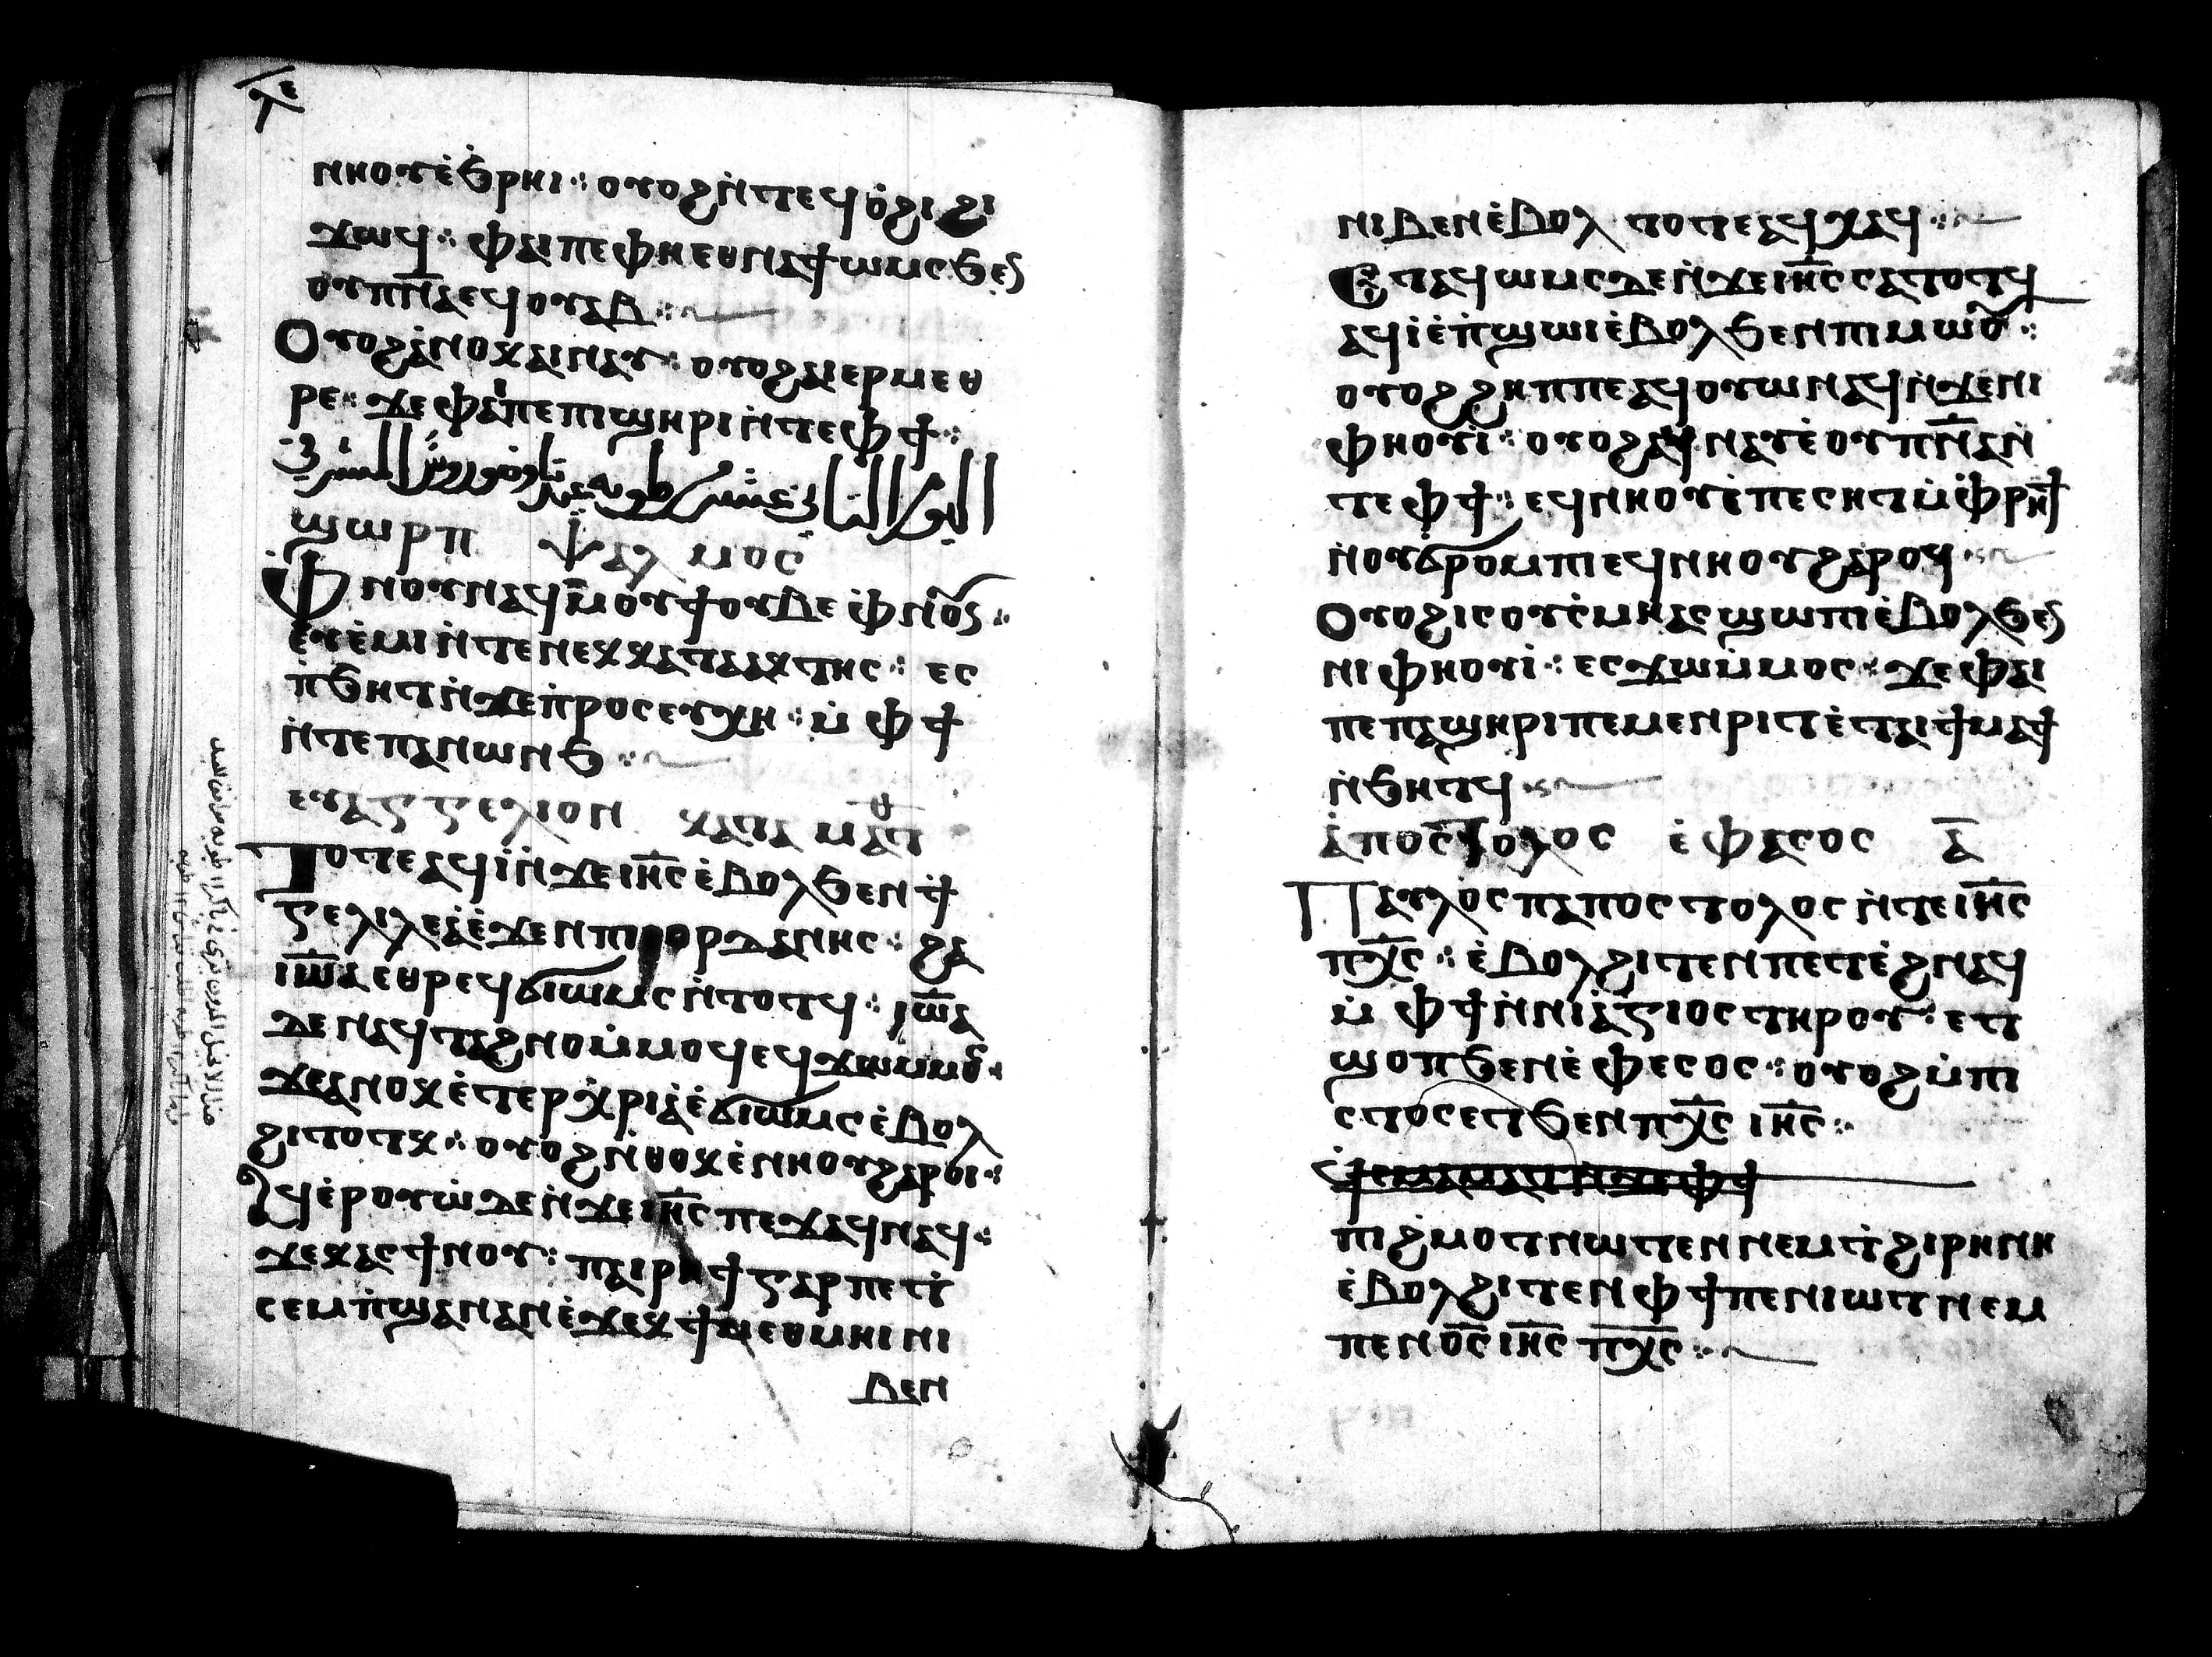 ⲗⲉ
ⲛⲏⲟⲩⲉ̀ϧⲣⲏⲓ⁘ ⲟⲩⲟϩⲛ̀ⲧⲉϥⲟ̀ϩⲓϩⲓ
ϫⲱϥ⁘ ⲫⲁⲓⲡⲉⲫⲏⲉⲑⲛⲁϯⲱⲙⲥϧⲉⲛ
ⲟⲩⲡ̅ⲛ̅ⲁ̅ⲉϥⲟⲩⲁⲃ⁘
Ⲟⲩⲟϩⲁ̀ⲛⲟⲕⲁⲓⲛⲁⲩ⁘ ⲟⲩⲟϩⲁⲓⲉⲣⲙⲉⲑ
ⲣⲉ⁘ ϫⲉⲫⲁⲓⲡⲉⲡⲓϣⲏⲣⲓⲛ̀ⲧⲉⲫϯ⁘
ϣⲱⲣⲡ ⲯⲁⲗⲙⲟⲥ
Ⲫⲛⲟⲩⲛⲁϥⲙ̅ⲟⲩϯⲟⲩⲃⲉⲫ̀ⲛⲟⲩⲛ⁘
ⲉⲩⲉ̀ⲙⲓⲛ̀ⲧⲉⲛⲉⲕⲕⲁⲧⲁⲣⲁⲕⲧⲏⲥ⁘ ⲉⲥ
ⲛ̀ϧⲏⲧⲛ̀ϫⲉⲡ̀ⲣⲟⲥⲉⲩⲭⲏ⁘ ⲙ̀ⲫϯ
ⲛ̀ⲧⲉⲡⲁⲛⲱⲛϧ⁘
ⲉⲩⲁⲅⲅⲉⲗⲓⲟⲛ ⲕⲁⲧⲁ ⲙⲁⲧⲑ
Ⲧⲟⲧⲉⲁϥⲓ̀ⲛ̀ϫⲉⲓⲏ̅ⲥ̅ⲉ̀ⲃⲟⲗϧⲉⲛϯ
ⲅⲉⲗⲓⲗⲉⲁ̀ⲉ̀ϫⲉⲛⲡⲓⲓⲟⲣⲇⲁⲛⲏⲥ⁘ ϩⲁ
ⲓⲱ̅ⲁ̅ⲉⲑⲣⲉϥϭⲓⲱⲙⲥⲛ̀ⲧⲟⲧϥ⁘ ⲓⲱ̅ⲁ̅
ⲇⲉⲛⲁϥⲧⲁϩⲛⲟⲙ̀ⲙⲟϥⲉϥϫⲱⲙⲙⲟⲥ
ϫⲉⲁⲛⲟⲕⲉ̀ⲧⲉⲣⲭ̀ⲣⲓⲁ̀ⲉ̀ϭⲓⲱⲙⲥⲉ̀ⲃⲟⲗ
ϩⲓⲧⲟⲧⲕ⁘ ⲟⲩⲟϩⲛ̀ⲑⲟⲕⲉ̀ⲛⲏⲟⲩϩⲁⲣⲟⲓ⁘
Ⲁϥⲉ̀ⲣⲟⲩⲱ̀ⲇⲉⲛ̀ϫⲉⲓⲏ̅ⲥ̅ⲡⲉϫⲁϥⲛⲁϥ⁘
ϫⲉⲭⲁⲥϯⲛⲟⲩ⁘ ⲡⲁⲓⲣⲏϯⲅⲁⲣⲡⲉⲧ
ⲥⲉⲙⲡ̀ϣⲁⲛⲁⲛⲉ̀ϫⲉⲕϯⲙⲉⲑⲙⲏⲓⲛⲓ
ⲃⲉⲛ
ⲛⲓⲃⲉⲛⲉ̀ⲃⲟⲗ ⲧⲟⲧⲉⲁϥⲭⲁϥ⁘
Ⲉⲧⲁϥⲱⲙⲥⲇⲉⲛ̀ϫⲉⲓⲏ̅ⲥ̅ⲥⲁⲧⲟⲧϥ
ⲁϥⲓ̀ⲉ̀ⲡ̀ϣⲱⲓⲉ̀ⲃⲟⲗϧⲉⲛⲡⲓⲙⲱⲟⲩ⁘
ⲟⲩⲟϩϩⲏⲡⲡⲉⲁϥⲟⲩⲱⲛⲁϥⲛ̀ϫⲉⲛⲓ
ⲫⲏⲟⲩⲓ̀⁘ ⲟⲩⲟϩⲁϥⲛⲁⲩⲉ̀ⲟⲩⲡ̅ⲛ̅ⲁ̅ⲛ̀
ⲧⲉⲫϯ⁘ ⲉϥⲛⲏⲟⲩⲉ̀ⲡⲉⲥⲏⲧⲙ̀ⲫ̀ⲣⲏϯ
ⲛ̀ⲟⲩϭⲣⲟⲙⲡⲓⲉϥⲛⲏⲟⲩϩⲁⲣⲟϥ⁘
Ⲟⲩⲟϩⲓⲥⲟⲩⲥ̀ⲙⲏⲁⲥϣⲱⲡⲓⲉ̀ⲃⲟⲗϧⲉⲛ
ⲛⲓⲫⲏⲟⲩⲓ̀⁘ ⲉⲥϫⲱⲙ̀ⲙⲟⲥ⁘ ϫⲉⲫⲁⲓ
ⲡⲉⲡⲁϣⲏⲣⲓⲡⲉⲙⲉⲛⲣⲓⲧⲉ̀ⲧⲁⲓϯⲙⲁϯ
ⲛ̀ϧⲏⲧϥ⁘
ⲁ̀ⲡⲟⲥⲧⲟⲗⲟⲥ ⲉ̀ⲫⲁⲥⲟⲥ ⲁ̅
Ⲡⲁⲩⲗⲟⲥⲡⲁⲡⲟⲥⲧⲟⲗⲟⲥⲛ̀ⲧⲉⲓⲏ̅ⲥ̅
ⲡⲭ̅ⲥ̅⁘ ⲉ̀ⲃⲟⲗϩⲓⲧⲉⲛⲡⲉⲧⲉ̀ϩⲛⲁϥ
ⲙ̀ⲫϯⲛ̀ⲛⲓⲁ̀ⲅⲓⲟⲥⲧⲏⲣⲟⲩ⁘ ⲉⲧ
ϣⲟⲡϧⲉⲛⲉ̀ⲫⲉⲥⲟⲥ⁘ ⲟⲩⲟϩⲙ̀ⲡⲓ
ⲥⲧⲟⲥⲉⲧϧⲉⲛⲡⲭ̅ⲥ̅ ⲓⲏ̅ⲥ̅⁘
ⲡⲓϩ̀ⲙⲟⲧⲛⲱⲧⲉⲛⲛⲉⲙⲧ̀ϩⲓⲣⲏⲛⲏ
ⲉ̀ⲃⲟⲗϩⲓⲧⲉⲛⲫϯⲡⲉⲛⲓⲱⲧⲛⲉⲙ
ⲡⲉⲛⲟ̅ⲥ̅ⲓⲏ̅ⲥ̅ ⲡⲭ̅ⲥ̅⁘